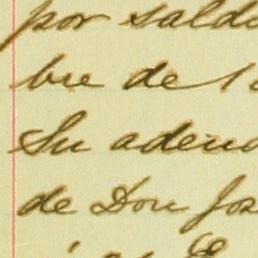 por saldo
bre de 1
Su adeud
de Don Jos